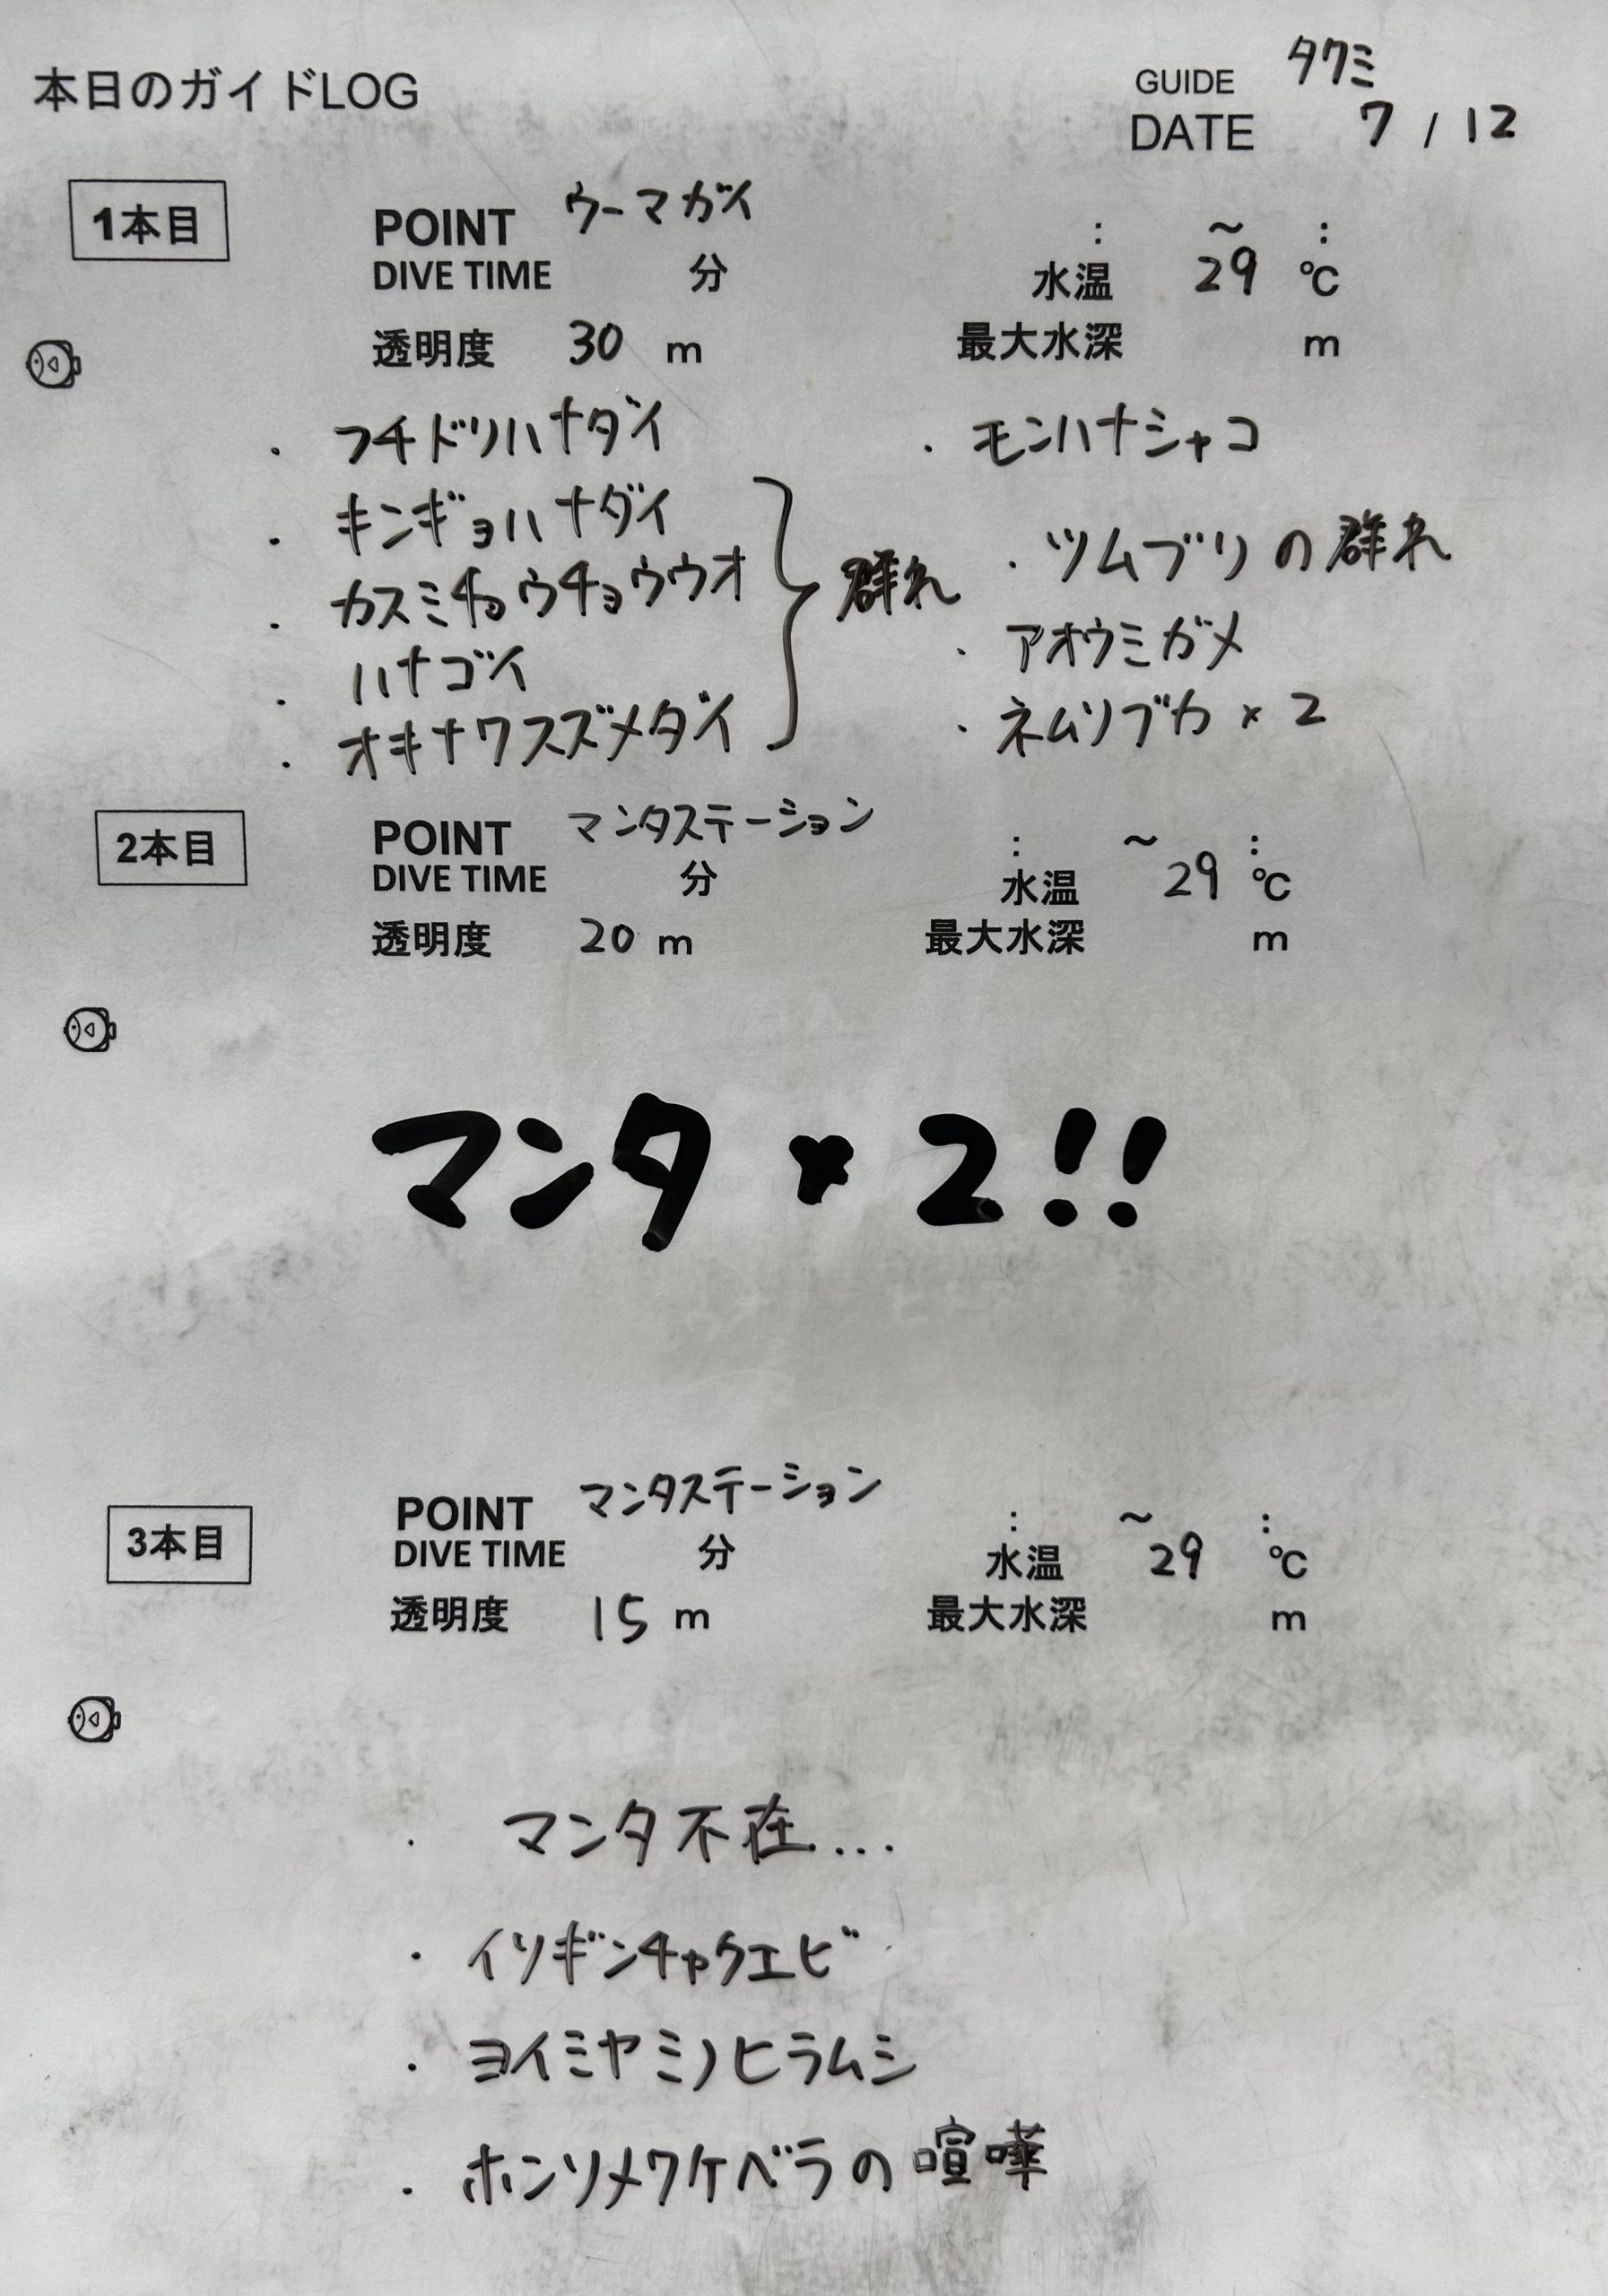 本日のガイドLOG
GUIDE タクミ
DATE 7 / 12
1本目
POINT ウーマガイ : ～ :
DIVE TIME 分 水温 29 ℃
透明度 30 m 最大水深 m
・ フチドリハナダイ
・ キンギョハナダイ
・ カスミチョウチョウウオ
・ ハナゴイ
・ オキナワスズメダイ
群れ
・ モンハナシャコ
・ ツムブリの群れ
・ アオウミガメ
・ ネムリブカ × 2
2本目
POINT マンタステーション : ～ :
DIVE TIME 分 水温 29 ℃
透明度 20 m 最大水深 m
マンタ × 2!!
3本目
POINT マンタステーション : ～ :
DIVE TIME 分 水温 29 ℃
透明度 15 m 最大水深 m
・ マンタ不在...
・ イソギンチャクエビ
・ ヨイミヤミノヒラムシ
・ ホンソメワケベラの喧嘩